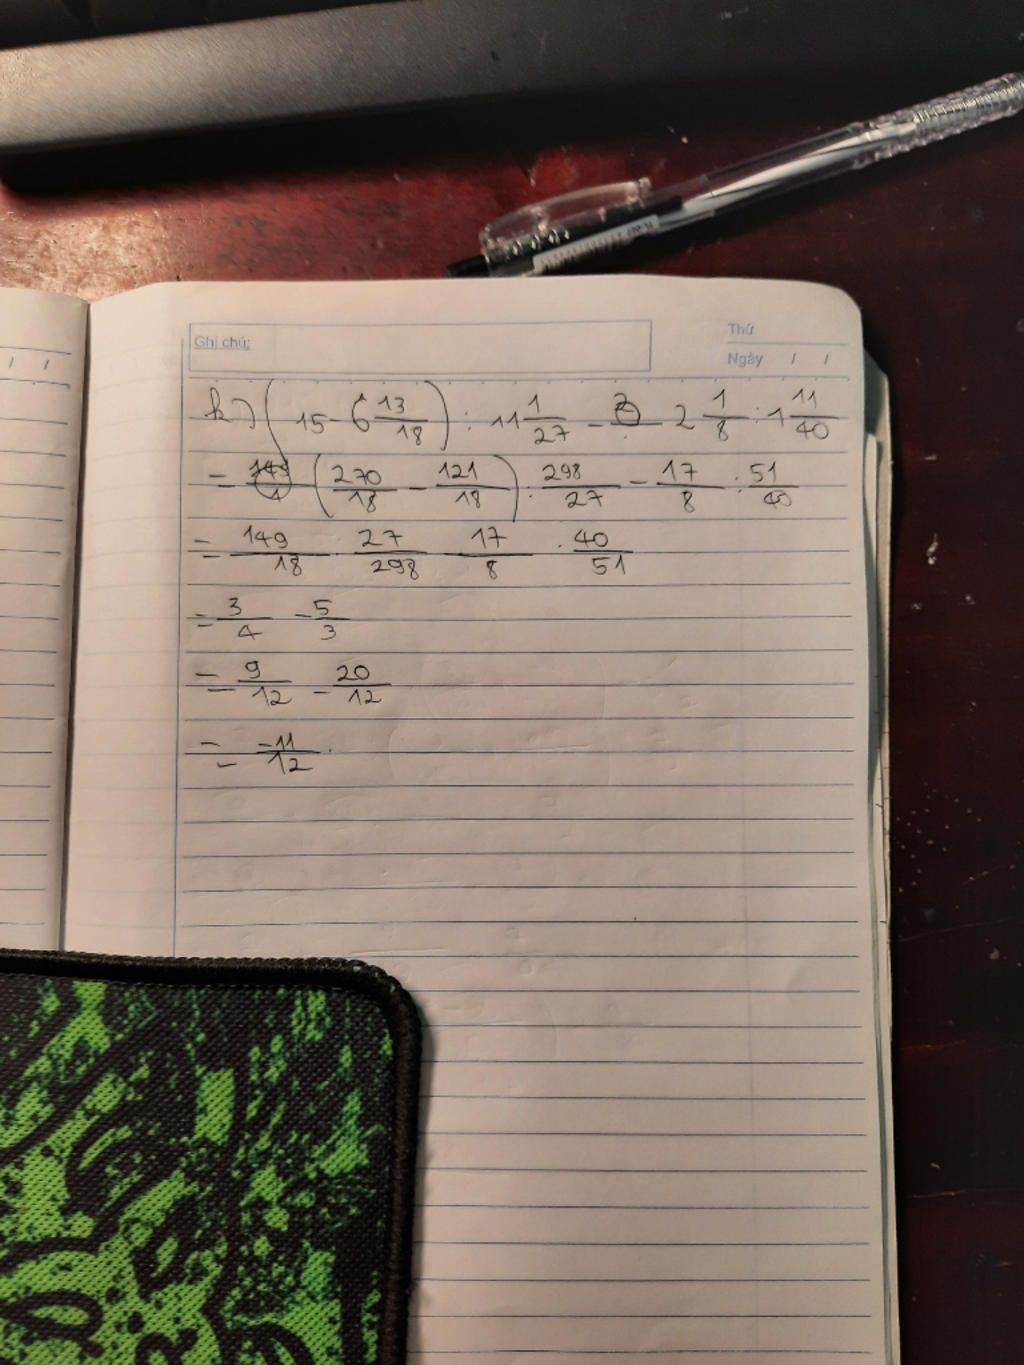 Ghi chú:
Thứ
Ngày / /
/ /
k) (15 - 6 13/18) : 11 1/27 - 2 1/8 : 1 11/40
= (270/18 - 121/18) : 298/27 - 17/8 : 51/40
= 149/18 · 27/298 - 17/8 · 40/51
= 3/4 - 5/3
= 9/12 - 20/12
= -11/12 .